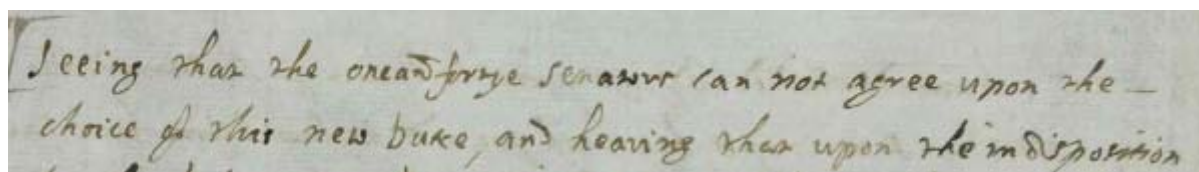 Seeing that the oneandfortye senators can not agree upon the –
choice of this new Duke, and hearing that upon the indisposition